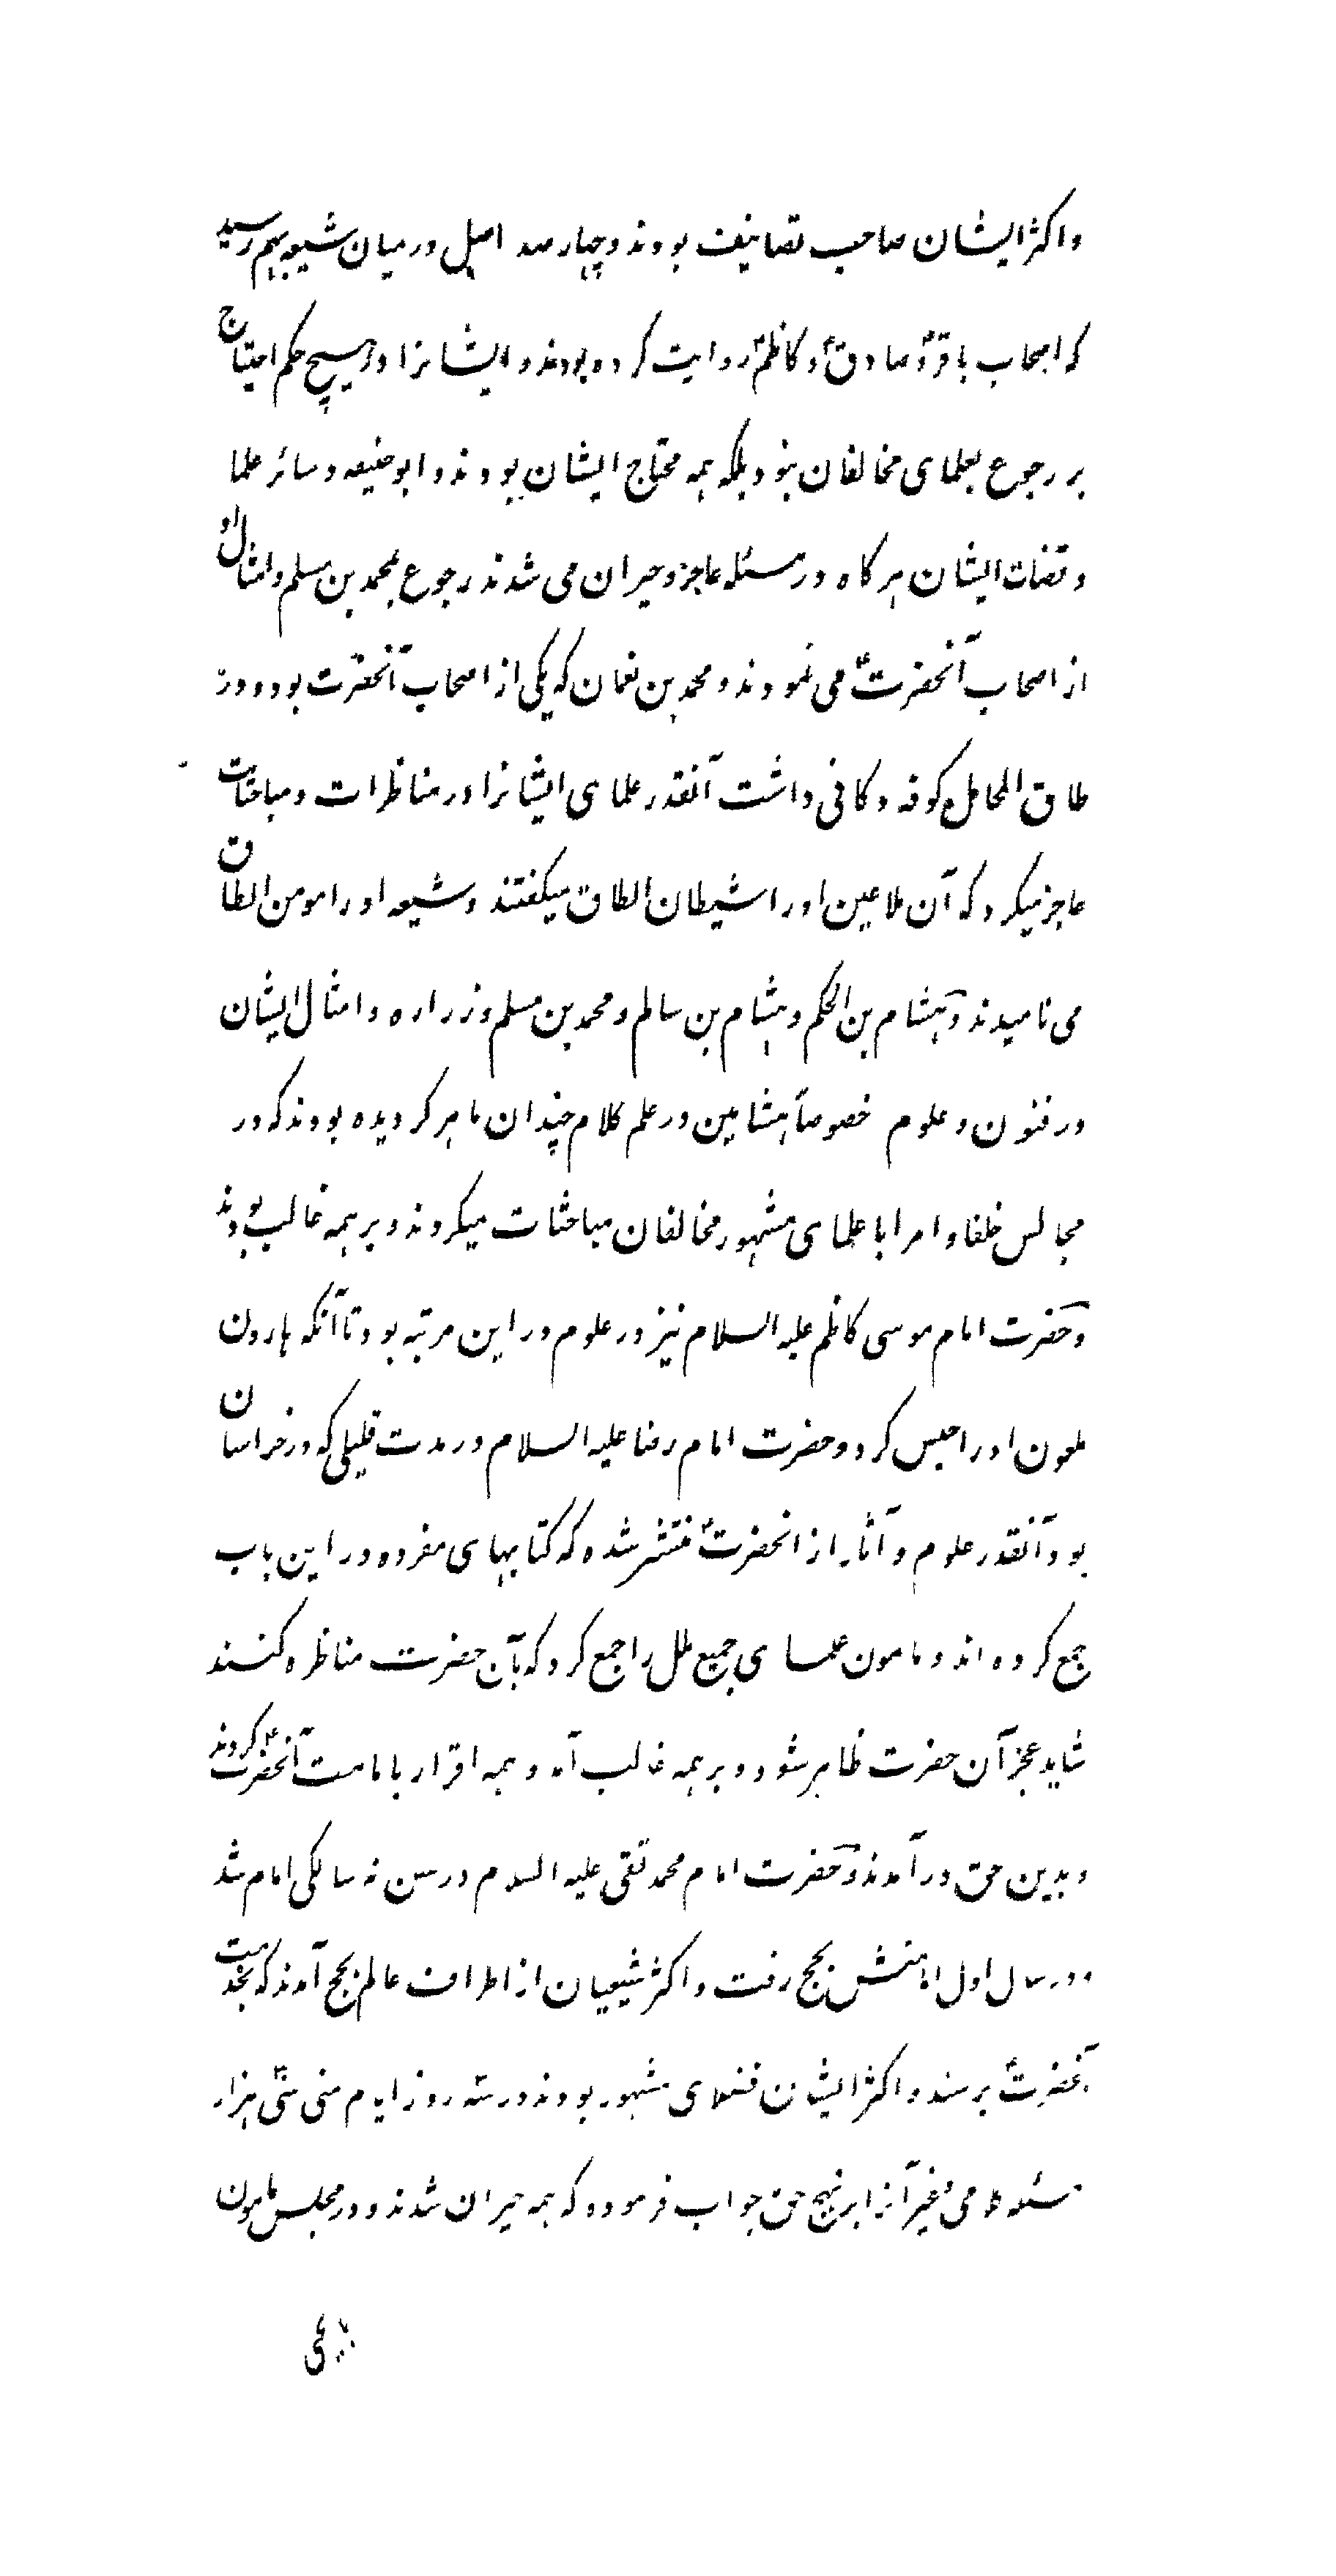 واکثر ایشان صاحب تصانیف بودند و چهار صد اصل در میان شیعه بهم رسید
که اصحاب باقرؑ و صادقؑ و کاظمؑ روایت کرده بودند و ایشانرا در هیچ حکم احتیاج
بر رجوع بعلمای مخالفان نبود بلکه همه محتاج ایشان بودند و ابو حنیفه و سائر علما
و قضات ایشان هر کاه در مسئله عاجز و حیران می شدند رجوع بمحمد بن مسلم و امثال او
از اصحاب آنحضرتؑ می نمودند و محمد بن نعمان که یکی از اصحاب آنحضرت بود و در
طاق المحامل کوفه دکانی داشت آنقدر علمای ایشانرا در مناظرات و مباحثات
عاجز میکرد که آن ملاعین اورا شیطان الطاق میکفتند و شیعه او را مومن الطاق
می نامیدند و هشام بن الحکم و هشام بن سالم و محمد بن مسلم و زراره و امثال ایشان
در فنون و علوم خصوصاً هشامین در علم کلام چندان ماهر کردیده بودند که در
مجالس خلفا و امرا با علمای مشهور مخالفان مباحثات میکردند و بر همه غالب بودند
و حضرت امام موسی کاظم علیه السلام نیز در علوم در این مرتبه بود تا آنکه هارون
ملعون اورا حبس کرد و حضرت امام رضا علیه السلام در مدت قلیلی که در خراسان
بود آنقدر علوم و آثار از انحضرتؑ منتشر شده که کتابهای مفرده در این باب
جمع کرده اند و مامون علمای جمیع ملل را جمع کرد که بآن حضرت مناظره کنند
شاید عجز آن حضرت ظاهر شود و بر همه غالب آمد و همه اقرار بامامت آنحضرتؑ کردند
و بدین حق در آمدند و حضرت امام محمد تقی علیه السلام در سن نه سالکی امام شد
و در سال اول امامتش بحج رفت و اکثر شیعیان از اطراف عالم بحج آمدند که بخدمت
آنحضرتؑ برسند و اکثر ایشان فضلای مشهور بودند در سه روز ایام منی سی هزار
مسئله کلامی و غیر آنرا بر نهج حق جواب فرموده که همه حیران شدند و در مجلس مامون